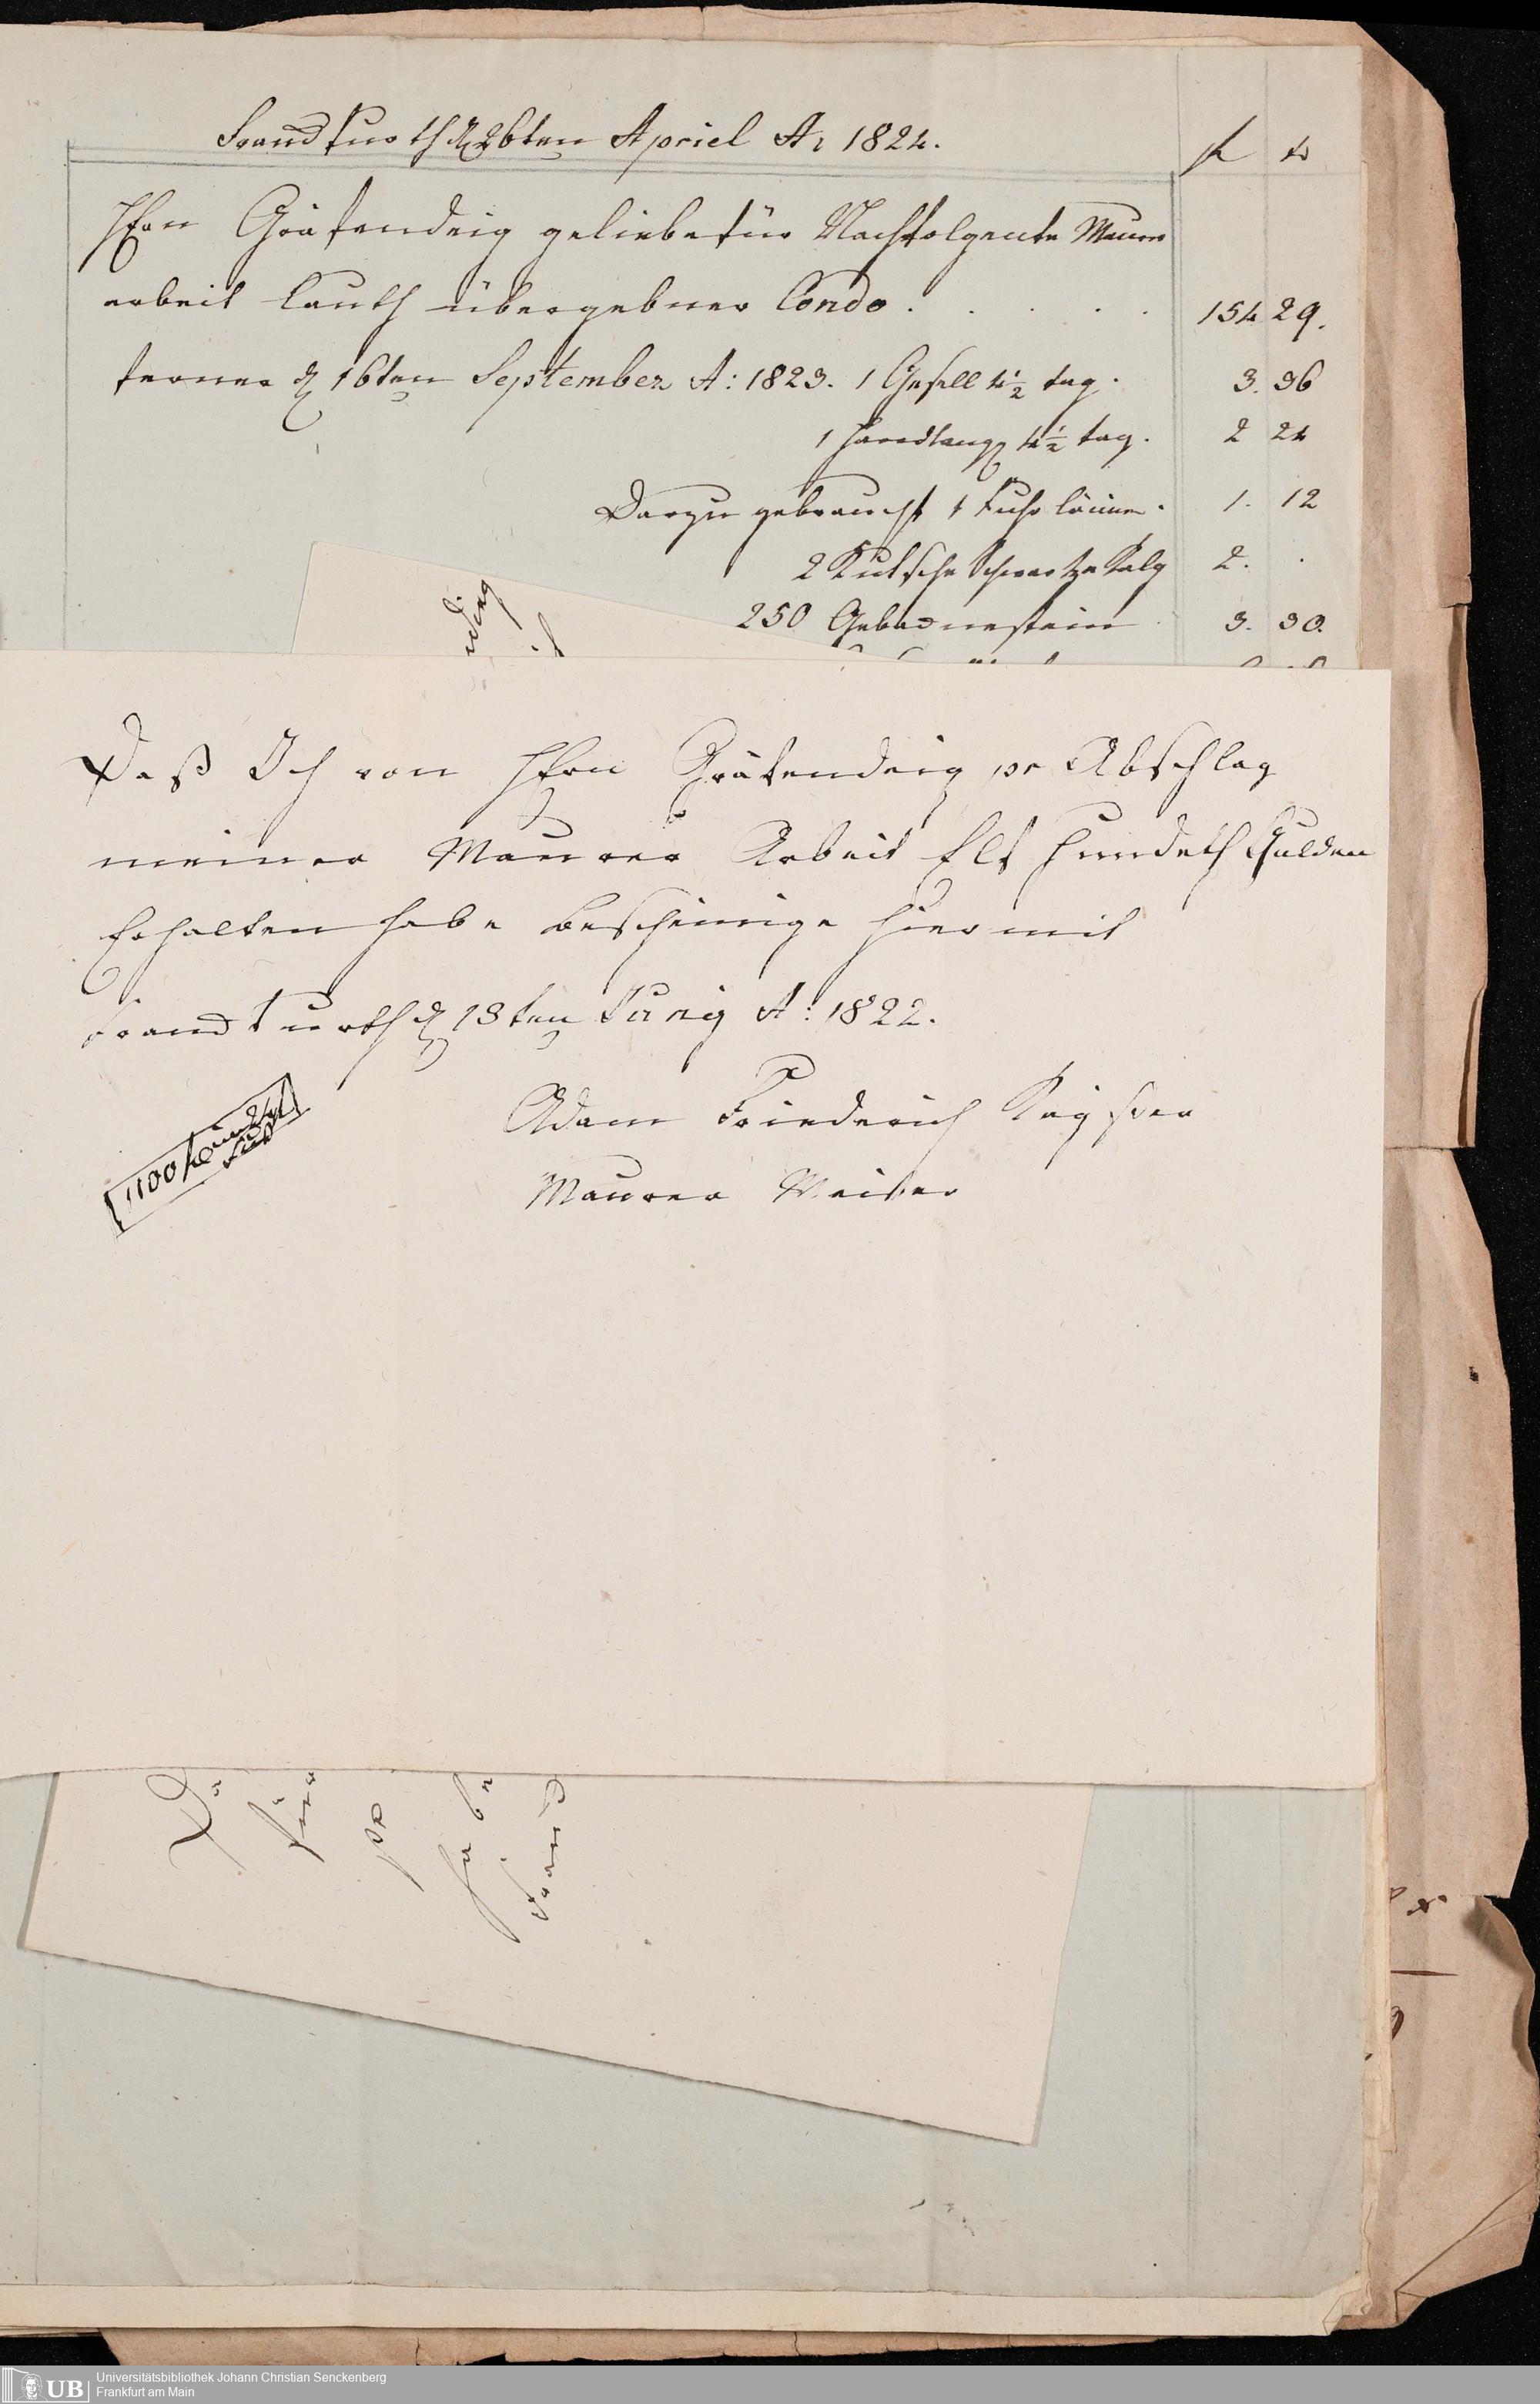 Franckfurth d 26ten Apriel A: 1824. fl xr
Hern Gräfendeig geliebe für Nachfolgente Maurer
arbeit lauth übergebner Condo . . . . . 154 29.
ferner d 16ten September A: 1823. 1 Gesell 4 1/2 tag. 3. 36
1 Handlang 4 1/2 tag. 2 24
Darzu gebraucht 1 Fuhr läimen. 1. 12
2 Kütsche Schwartze Kalg 2. .
250 Gebacknestein 3. 30.
Daß Ich von Hern Gräfendeig pr Abschlag
meiner Maurer Arbeit Elf Hundeth Gulden
Erhalten habe bescheinige hiermit
Franckfurth d 13ten Junij A: 1822.
Adam Friederich Kayßer
Maurer Meister
1100 fl
habe
Franck
Universitätsbibliothek Johann Christian Senckenberg
Frankfurt am Main
UB